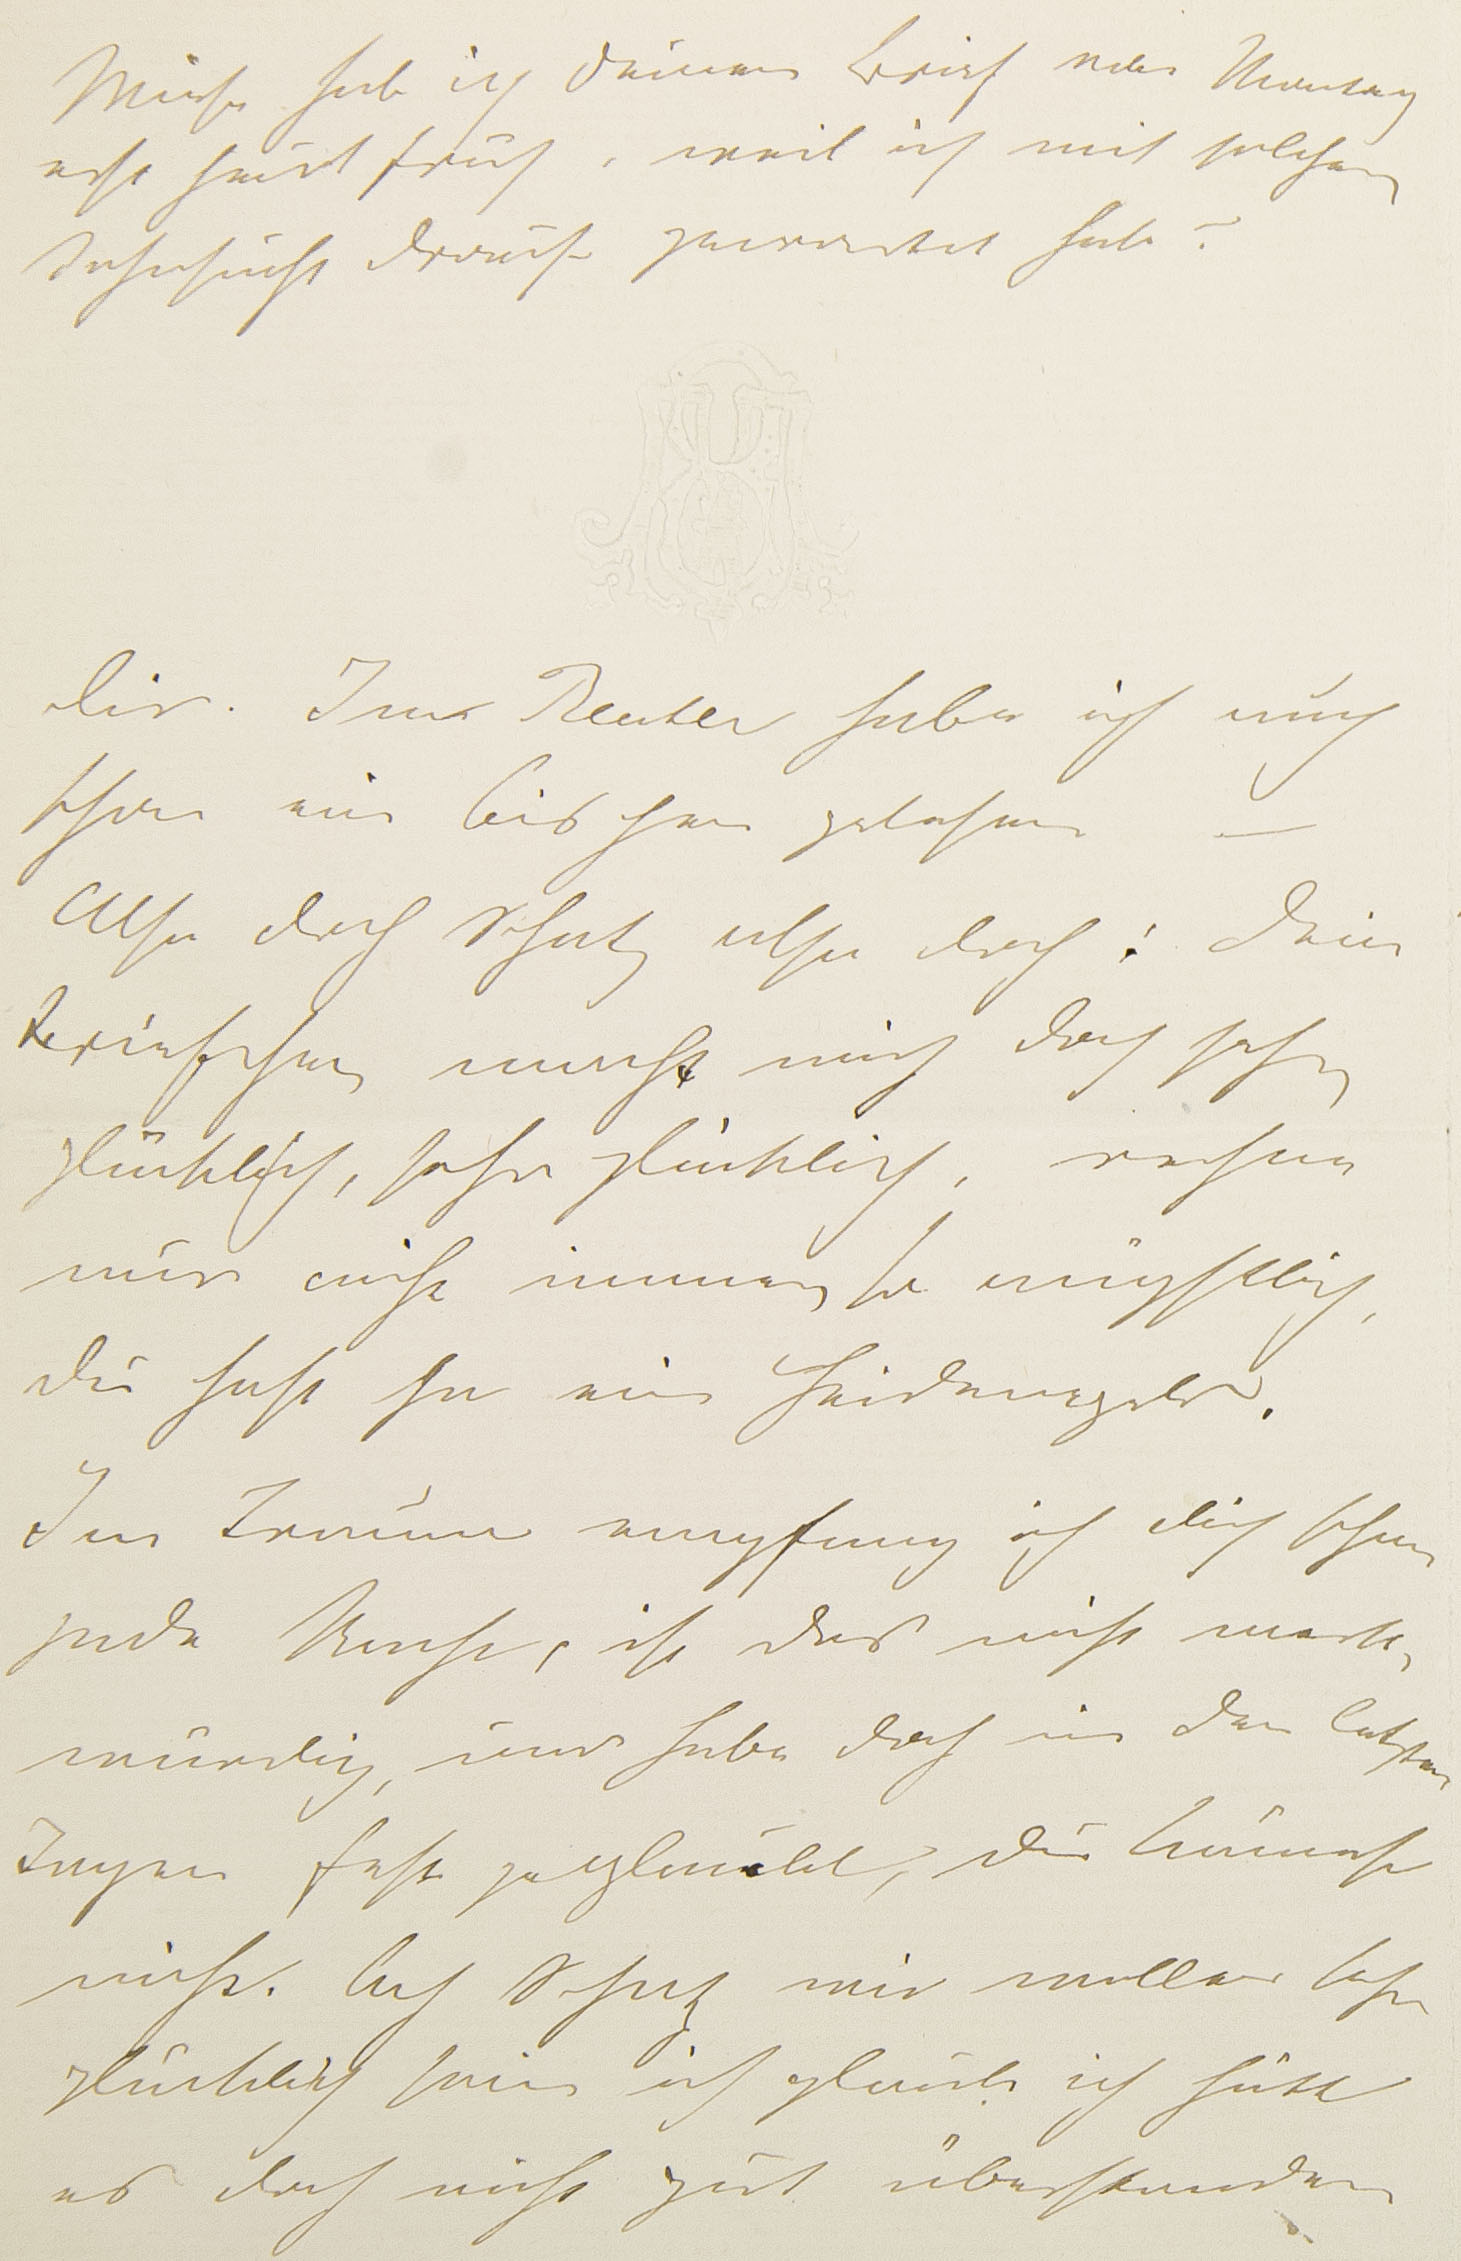 hab ich deinen Brief von Montag
erst heut früh, weil ich mit solcher
Sehnsucht drauf gewartet hab?
dir. Im Reuter habe ich auch
schon ein bischen gelesen —
Also doch Schatz also doch! Dein
Briefchen macht mich doch sehr
glücklich, sehr glücklich, rechne
nur nicht immer so ängstlich,
du hast ja ein Heidengeld.
Im Traume empfing ich dich schon
jede Nacht, ist das nicht merk-
würdig, und habe doch in den letzten
Tagen fast geglaubt, du kämest
nicht. Ach Schatz wir wollen sehr
glücklich sein ich glaub ich hätt
es doch nicht gut überstanden